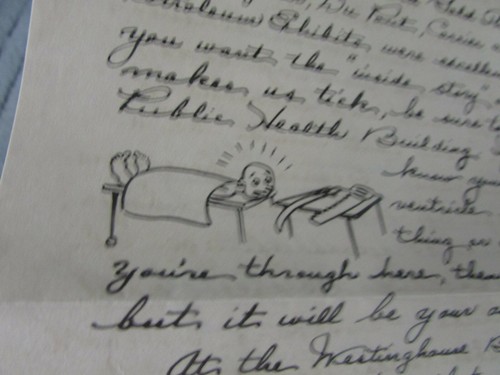 Petroleum) Exhibits were excellent
you want the "inside story"
makes us tick, be sure to
Public Health Building
know your
ventricle
thing or
You're through here, then
but it will be your
At the Westinghouse